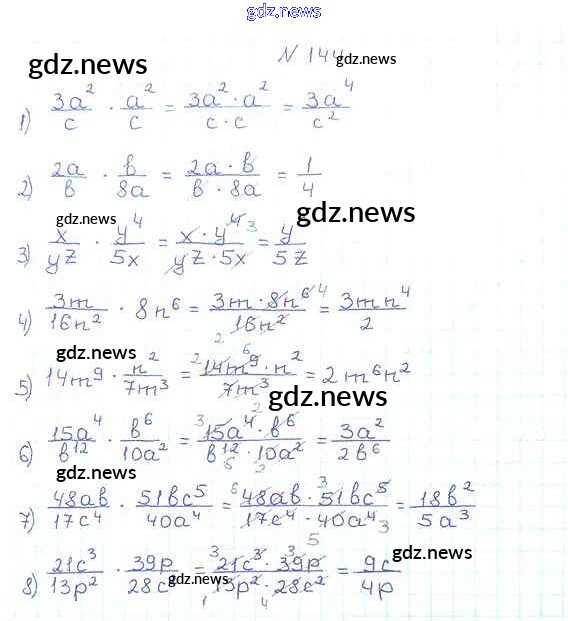 gdz.news
N 144
gdz.news
1) 3a²/c · a²/c = 3a²·a²/c·c = 3a⁴/c²
2) 2a/b · b/8a = 2a·b/b·8a = 1/4
gdz.news gdz.news
3) x/yz · y⁴/5x = x·y⁴ ³/yz·5x = y/5z
4) 3m/16n² · 8n⁶ = 3m·8n⁶ ⁴/₂ 16n² = 3mn⁴/2
gdz.news
5) 14m⁹ · n²/7m³ = ² 14m⁹ ⁶·n²/7m³ = 2m⁶n²
gdz.news
gdz.news
6) 15a⁴/b¹² · b⁶/10a² = ³ 15a⁴ ²·b⁶/b¹² ⁶·10a² ₂ = 3a²/2b⁶
gdz.news
7) 48ab/17c⁴ · 51bc⁵/40a⁴ = ⁶ 48ab · ³ 51bc⁵/17c⁴ · 40a⁴ ³ ₅ = 18b²/5a³
gdz.news
8) 21c³/13p² · 39p/28c² = ³ 21c³ · ³ 39p/₁ 13p² · 28c² ₄ = 9c/4p
gdz.news gdz.news